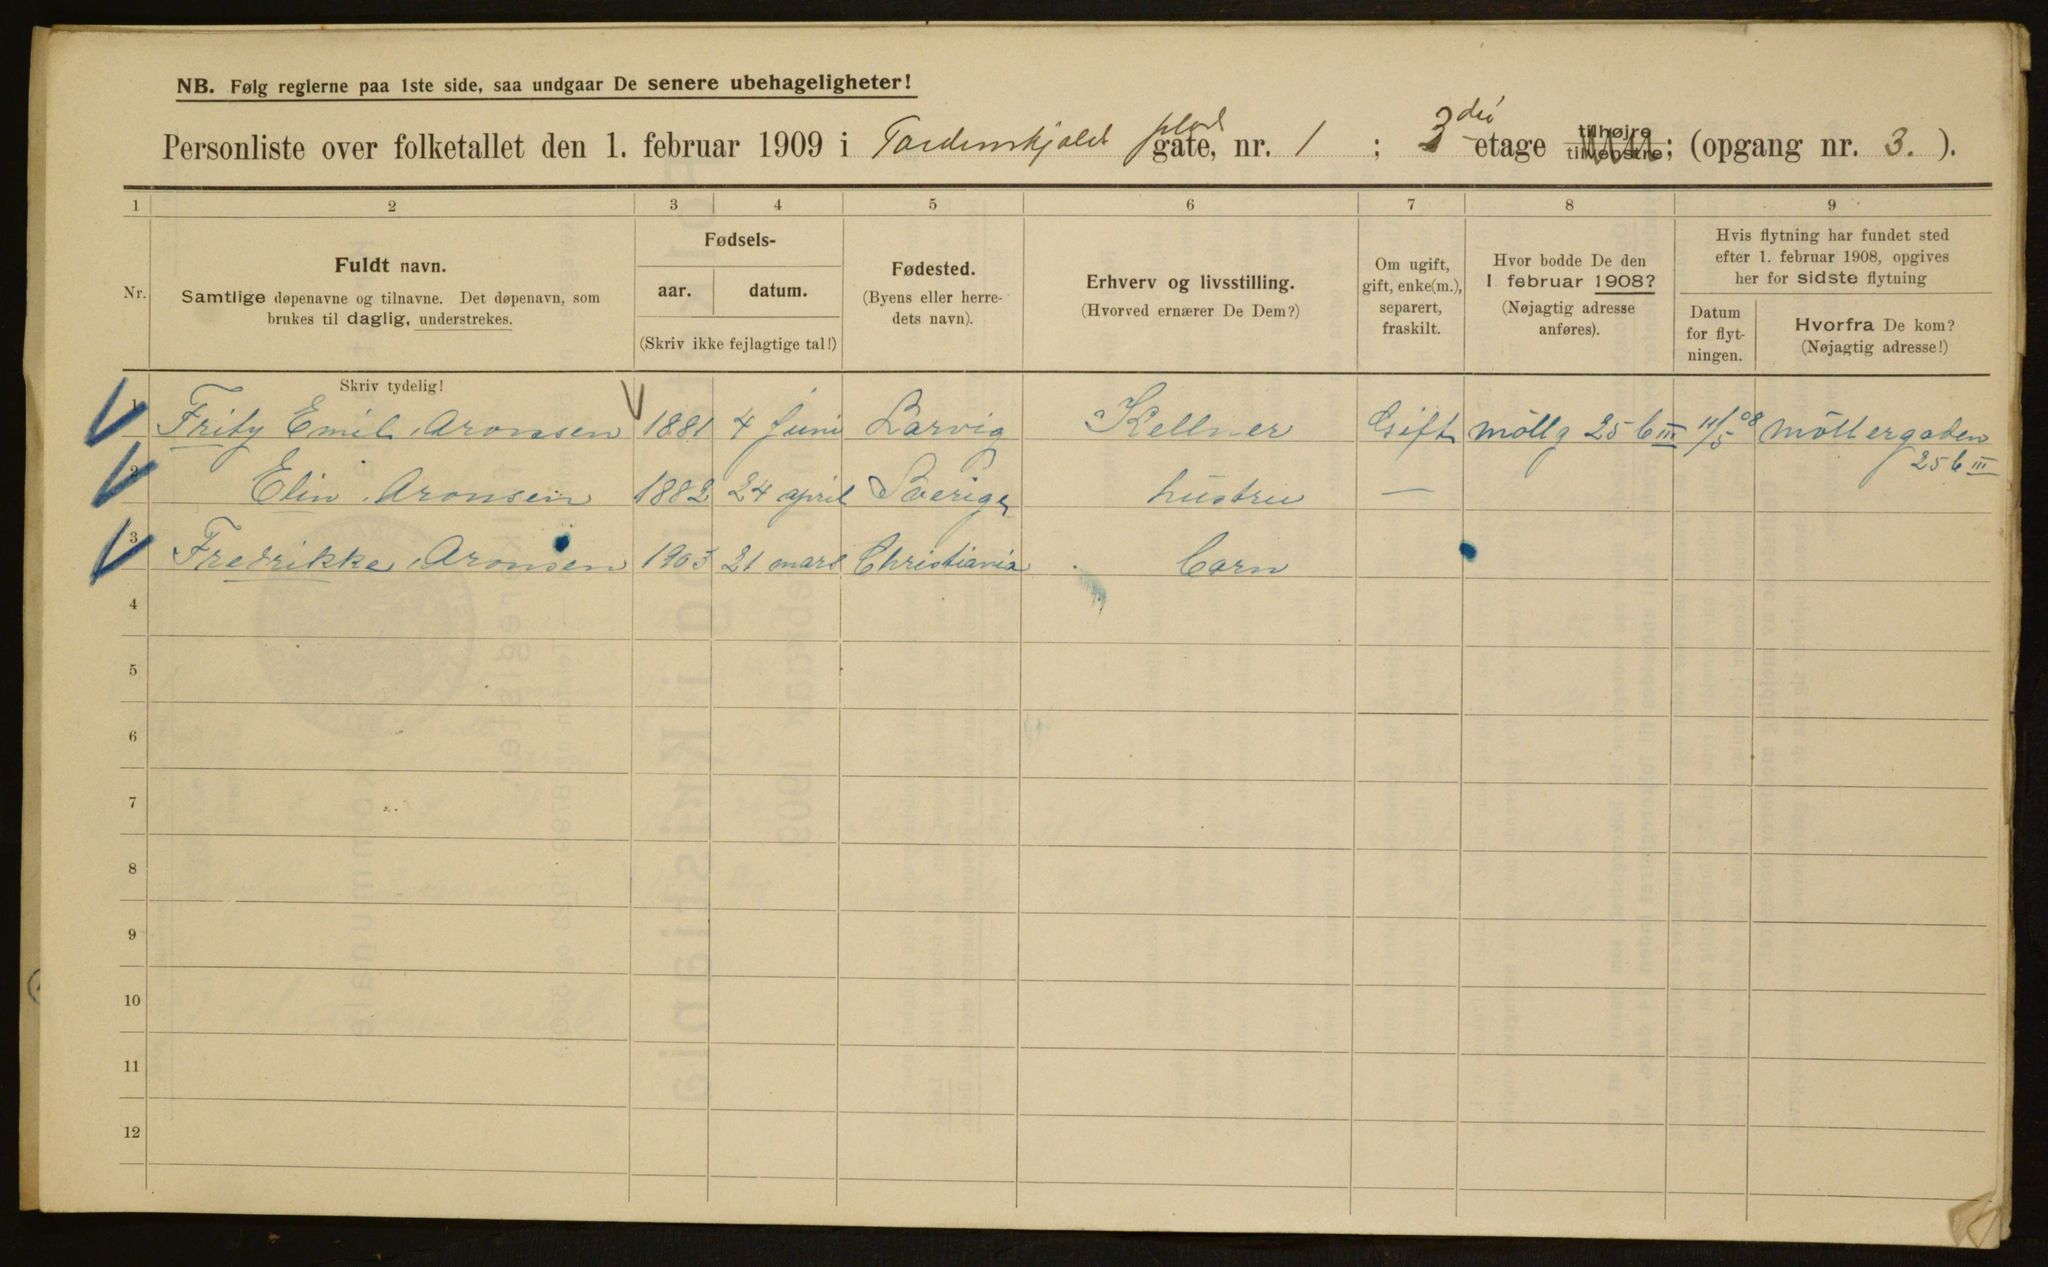 NB. Følg reglerne paa 1ste side, saa undgaar De senere ubehageligheter!
Personliste over folketallet den 1. februar 1909 i Tordenskjolds plads gate, nr. 1 ; 3 die etage tilhøjre tilvenstre; (opgang nr. 3. ).
1 2 3 4 5 6 7 8 9
Nr.
Fuldt navn.
Samtlige døpenavne og tilnavne. Det døpenavn, som
brukes til daglig, understrekes.
Skriv tydelig!
Fødsels-
aar. datum.
(Skriv ikke fejlagtige tal!)
Fødested.
(Byens eller herre-
dets navn).
Erhverv og livsstilling.
(Hvorved ernærer De Dem?)
Om ugift,
gift, enke(m.),
separert,
fraskilt.
Hvor bodde De den
1 februar 1908?
(Nøjagtig adresse
anføres).
Hvis flytning har fundet sted
efter 1. februar 1908, opgives
her for sidste flytning
Datum
for flyt-
ningen.
Hvorfra De kom?
(Nøjagtig adresse!)
1 Fritz Emil Aronsen 1881 4 Juni Larvig Kellner Gift möllg 25 b III 11/5 08 möllergaden
25 b III
2 Elin Aronsen 1882 24 april Sverige hustru —
3 Fredrikke Aronsen 1903 21 mars Christiania barn
4
5
6
7
8
9
10
11
12